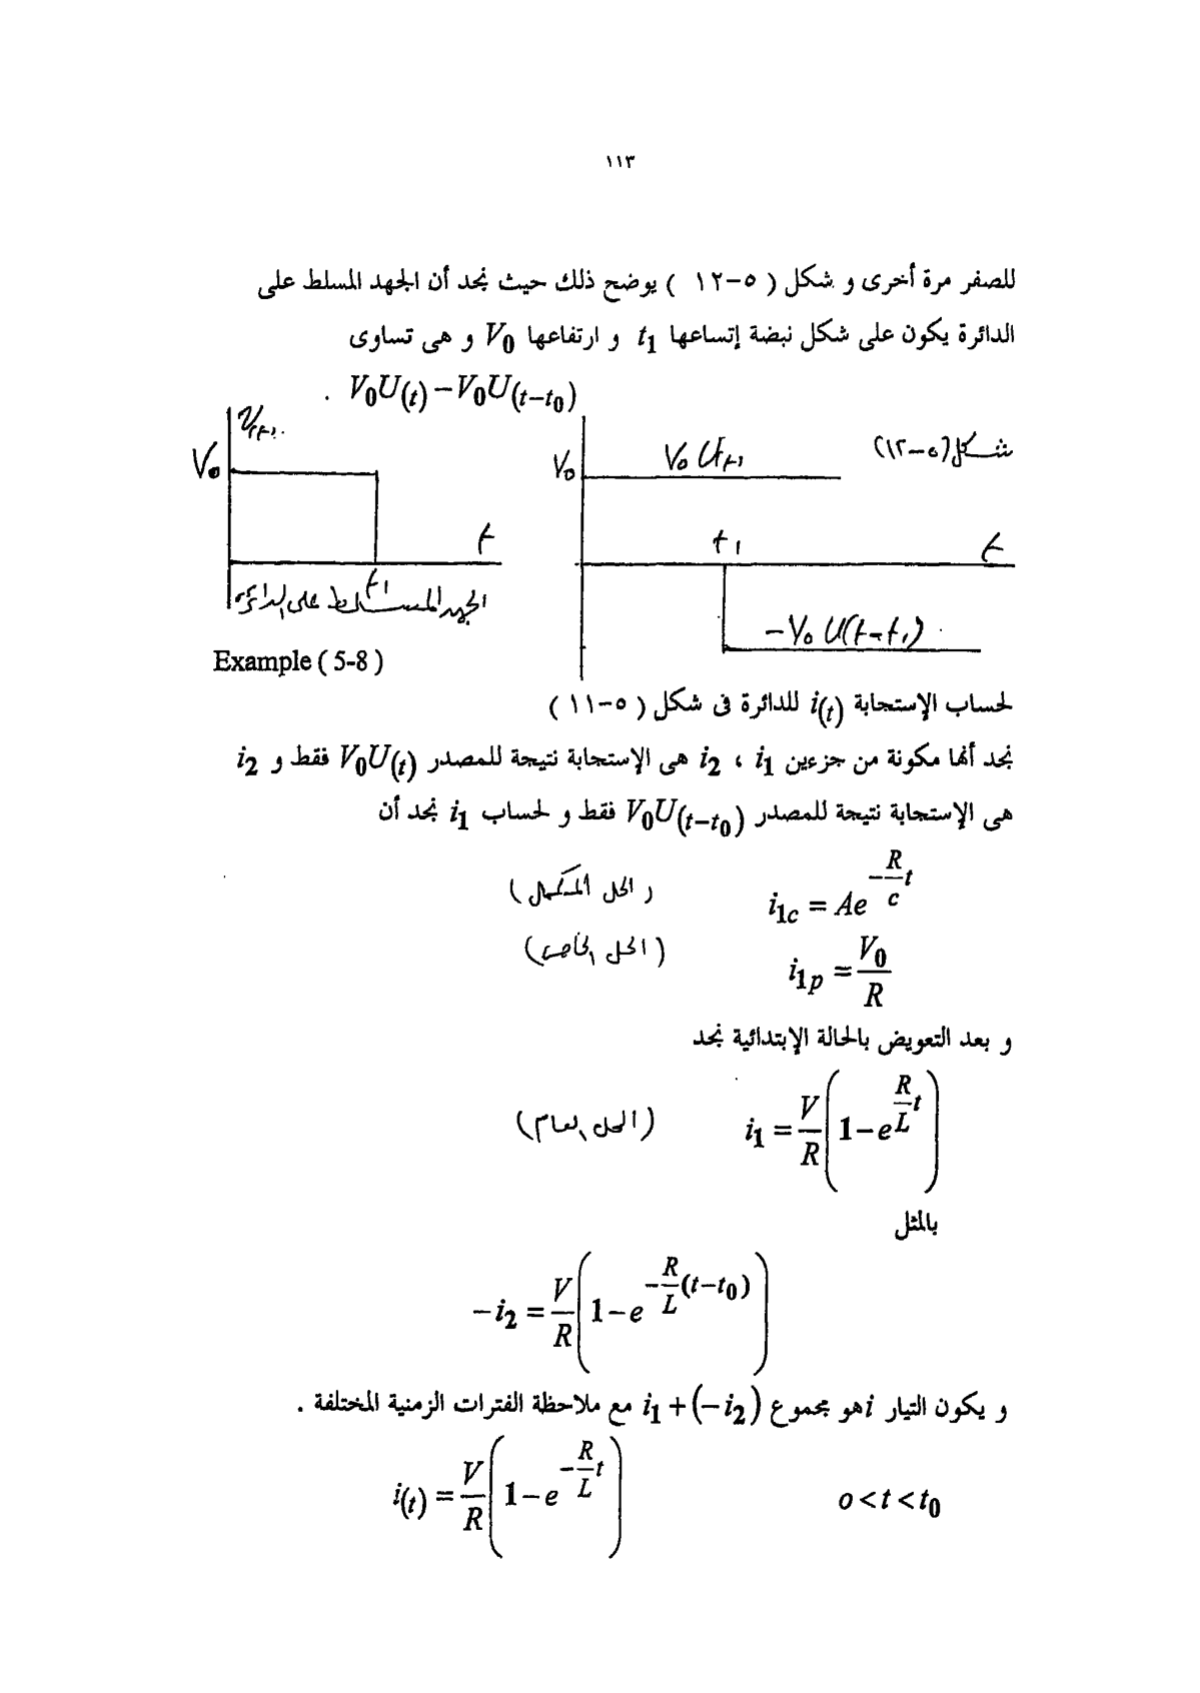 ١١٣
للصفر مرة أخرى و شكل ( ٥-١٢ ) يوضح ذلك حيث نجد أن الجهد المسلط على
الدائرة يكون على شكل نبضة إتساعها t₁ و ارتفاعها V₀ و هى تساوى
V₀U(t) − V₀U(t−t₀) .
شكل (٥-١٢)
V(t)
V₀
t
t₁
الجهد المسلط على الدائرة
V₀
V₀ U(t)
t₁
t
−V₀ U(t−t₁)
Example ( 5-8 )
لحساب الإستجابة i(t) للدائرة فى شكل ( ٥-١١ )
نجد أنها مكونة من جزءين i₁ ، i₂ هى الإستجابة نتيجة للمصدر V₀U(t) فقط و i₂
هى الإستجابة نتيجة للمصدر V₀U(t−t₀) فقط و لحساب i₁ نجد أن
i₁c = Ae^(−(R/c)t) (الحل المكمل)
i₁p = V₀/R (الحل الخاص)
و بعد التعويض بالحالة الإبتدائية نجد
i₁ = V/R (1−e^((R/L)t)) (الحل العام)
بالمثل
−i₂ = V/R (1−e^(−(R/L)(t−t₀)))
و يكون التيار i هو مجموع i₁+(−i₂) مع ملاحظة الفترات الزمنية المختلفة .
i(t) = V/R (1−e^(−(R/L)t)) o<t<t₀